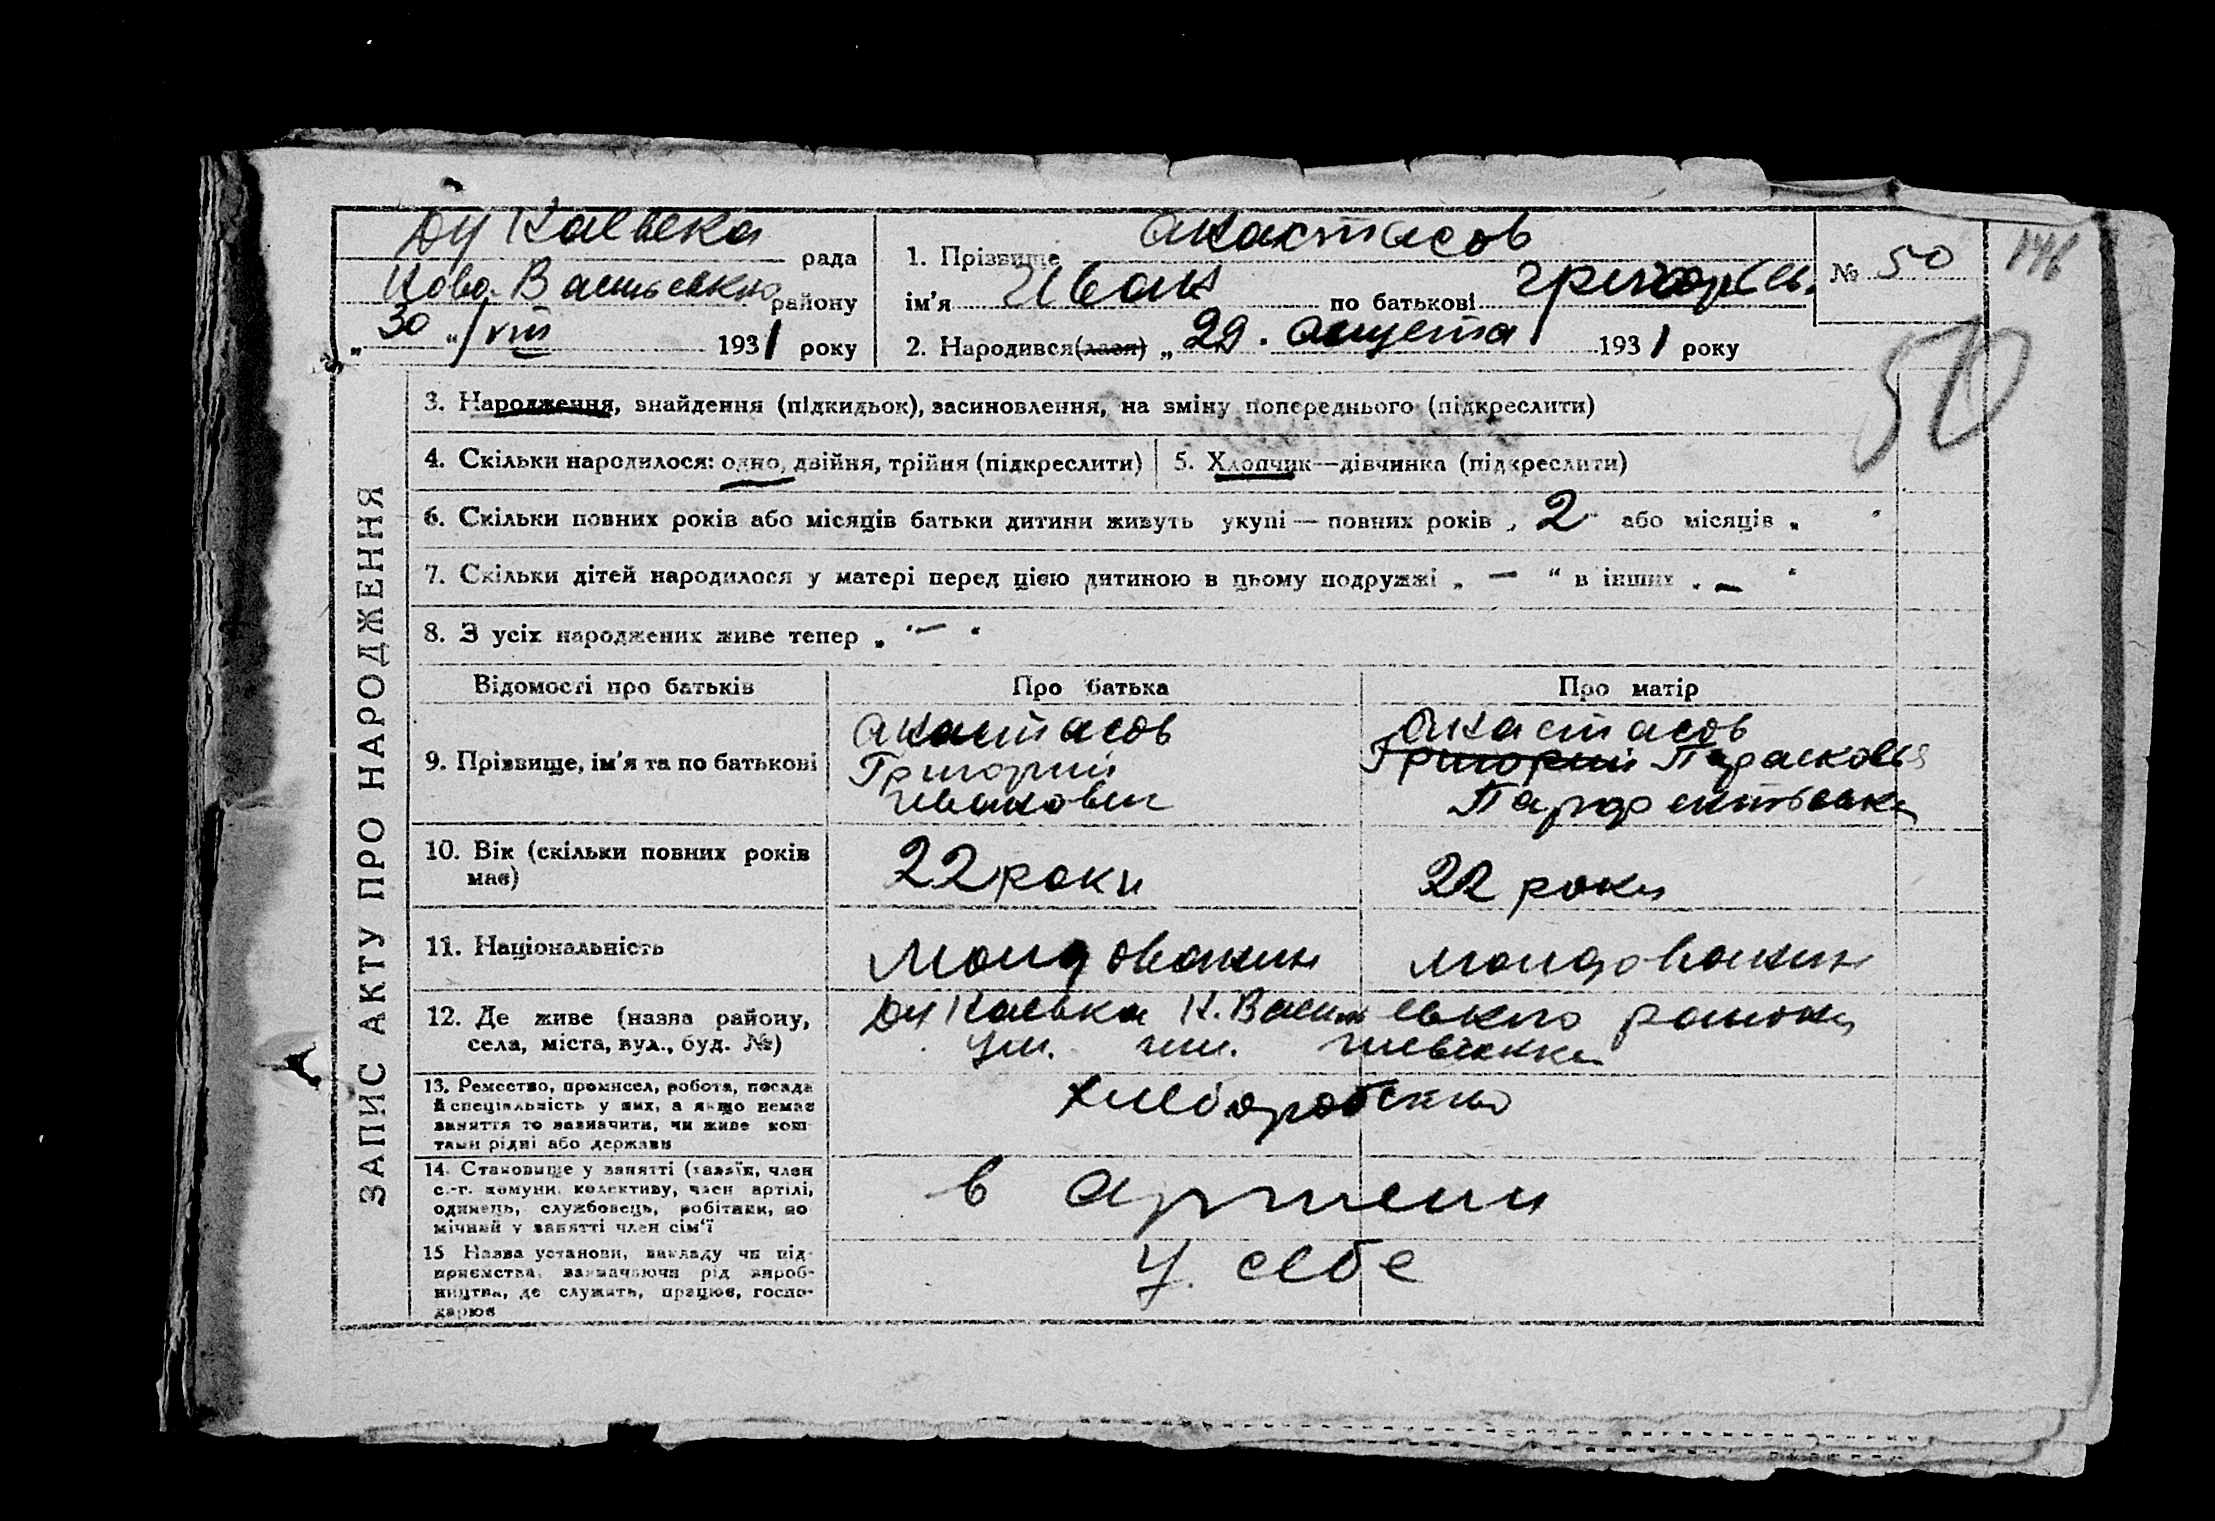 Дунаєвська рада
Ново-Васильевского району
„30“/VIII 1931 року
1. Прізвище Анастасов
ім'я Иван по батькові Григорьев.
2. Народився(лася) „29. августа 1931 року
№ 50
146
50
ЗАПИС АКТУ ПРО НАРОДЖЕННЯ
3. Народження, знайдення (підкидьок), засиновлення, на зміну попереднього (підкреслити)
4. Скільки народилося: одно, двійня, трійня (підкреслити)
5. Хлопчик—дівчинка (підкреслити)
6. Скільки повних років або місяців батьки дитини живуть укупі — повних років „2“ або місяців „ “
7. Скільки дітей народилося у матері перед цією дитиною в цьому подружжі „ — “ в інших „ — “
8. З усіх народжених живе тепер „ — “
Відомості про батьків
Про батька
Про матір
9. Прізвище, ім'я та по батькові
Анастасов
Григорий
Иванович
Анастасов
Григорий Парасковья
Парфентьевна
10. Вік (скільки повних років має)
22 роки
22 роки
11. Національність
молдованин
молдованин
12. Де живе (назва району,
села, міста, вул., буд. №)
Н. Васильевского района
ул. им. Шевченка
13. Ремество, промисел, робота, посада
й спеціяльність у них, а якщо немає
заняття то зазначити, чи живе кош-
тами рідні або держави
хлеборобство
14. Становище у занятті (хазяїн, член
с.-г. комуни, колективу, член артілі,
одинець, службовець, робітник, по
мічний у занятті член сім'ї
в артели
15 Назва установи, закладу чи під-
приємства, зазначаючи рід вироб-
ництва, де служить, працює, госпо-
дарює
у себе